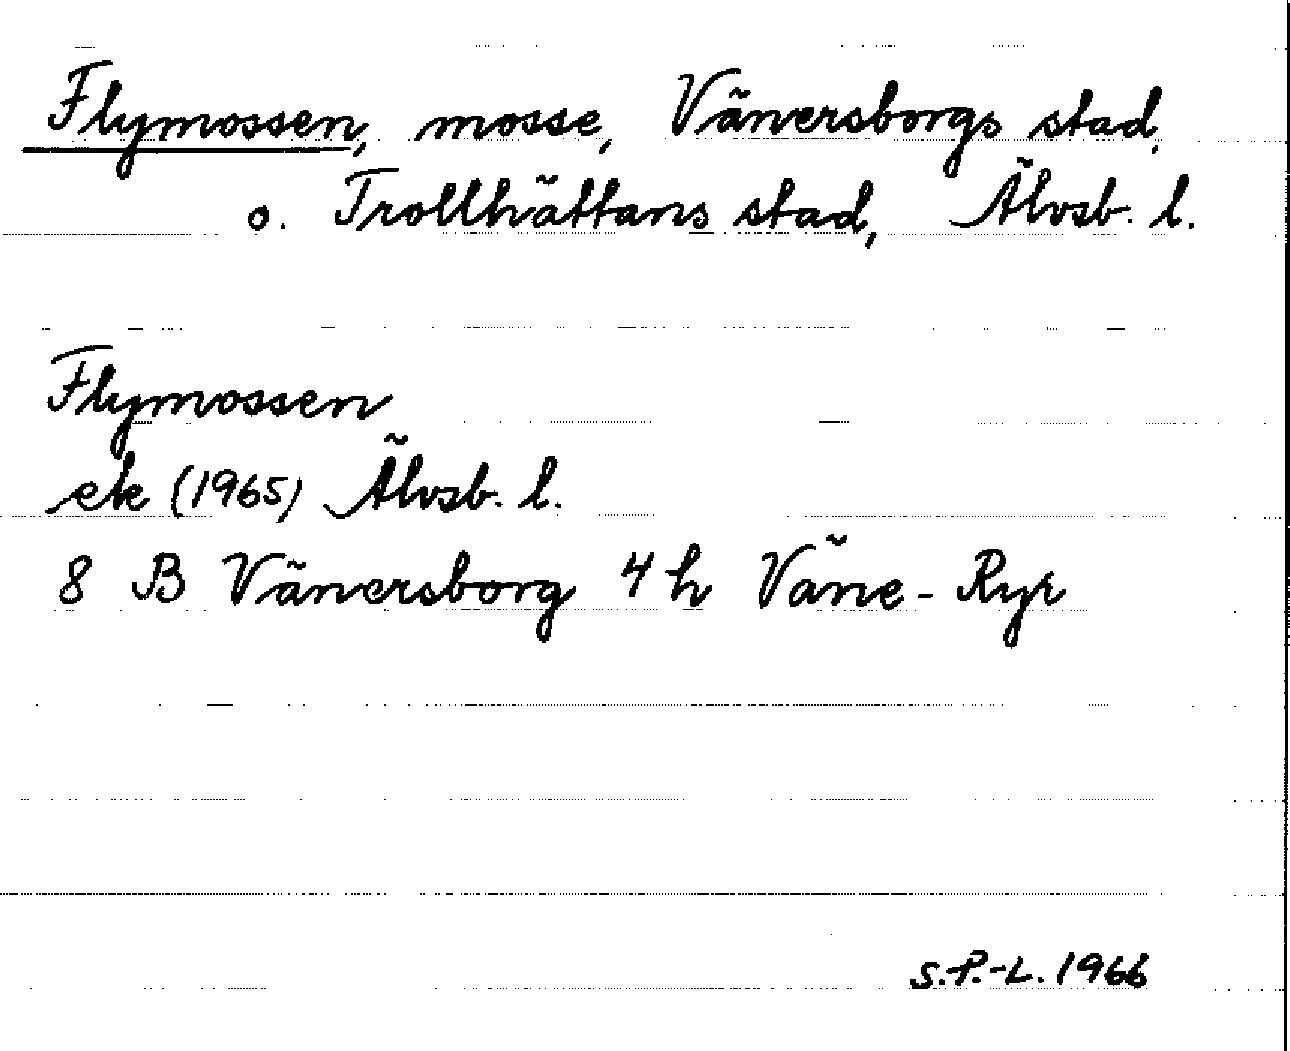 Flymossen, mosse, Vänersborgs stad,
o. Trollhättans stad, Älvsb. l.
Flymossen
ek (1965) Älvsb. l.
8 B Vänersborg 4 h Väne-Ryr
S.P.-L. 1966